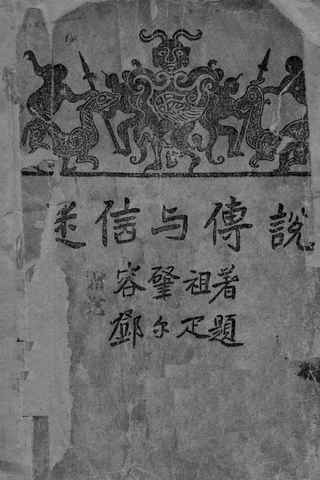 迷信与傳說
容肇祖著
鄧尔疋題